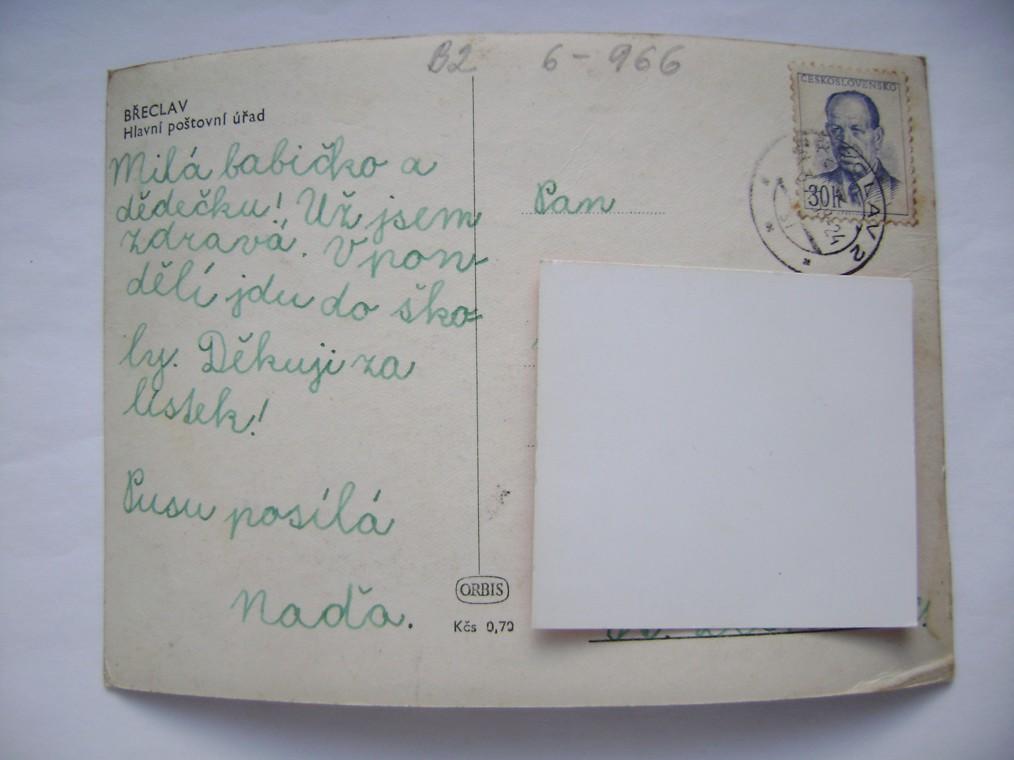 B2 6-966
BŘECLAV
Hlavní poštovní úřad
Milá babičko a
dědečku! Už jsem
zdravá. V pon-
dělí jdu do ško-
ly. Děkuji za
lístek!
Pusu posílá
Naďa.
ČESKOSLOVENSKO
30 h
Pan
ORBIS
Kčs 0,70